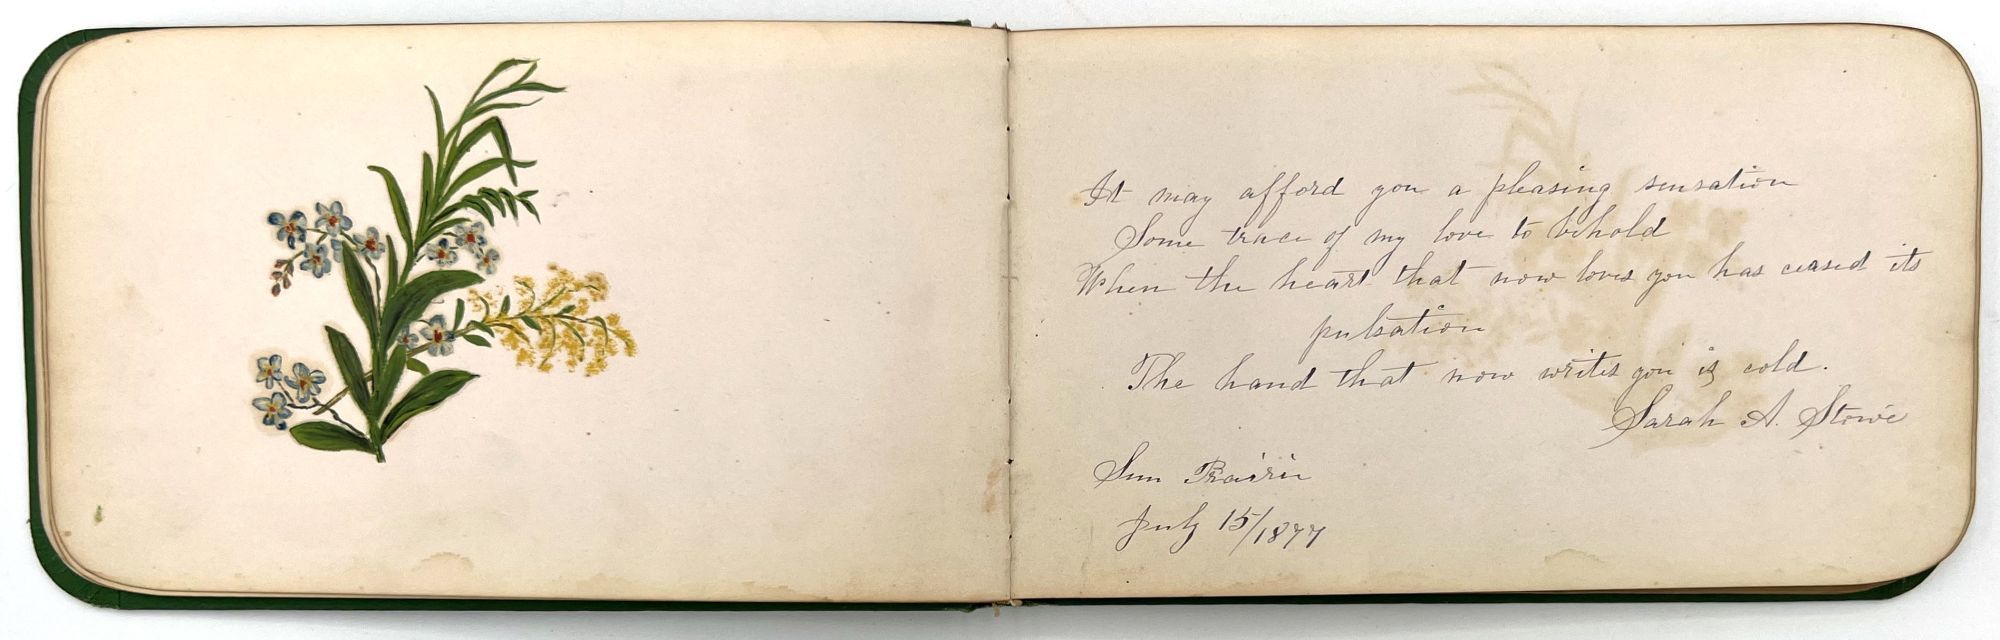 It may afford you a pleasing sensation
Some trace of my love to behold
When the heart that now loves you has ceased its
pulsation
The hand that now writes you is cold.
Sarah A. Stowe
Sun Prairie
July 15/1877